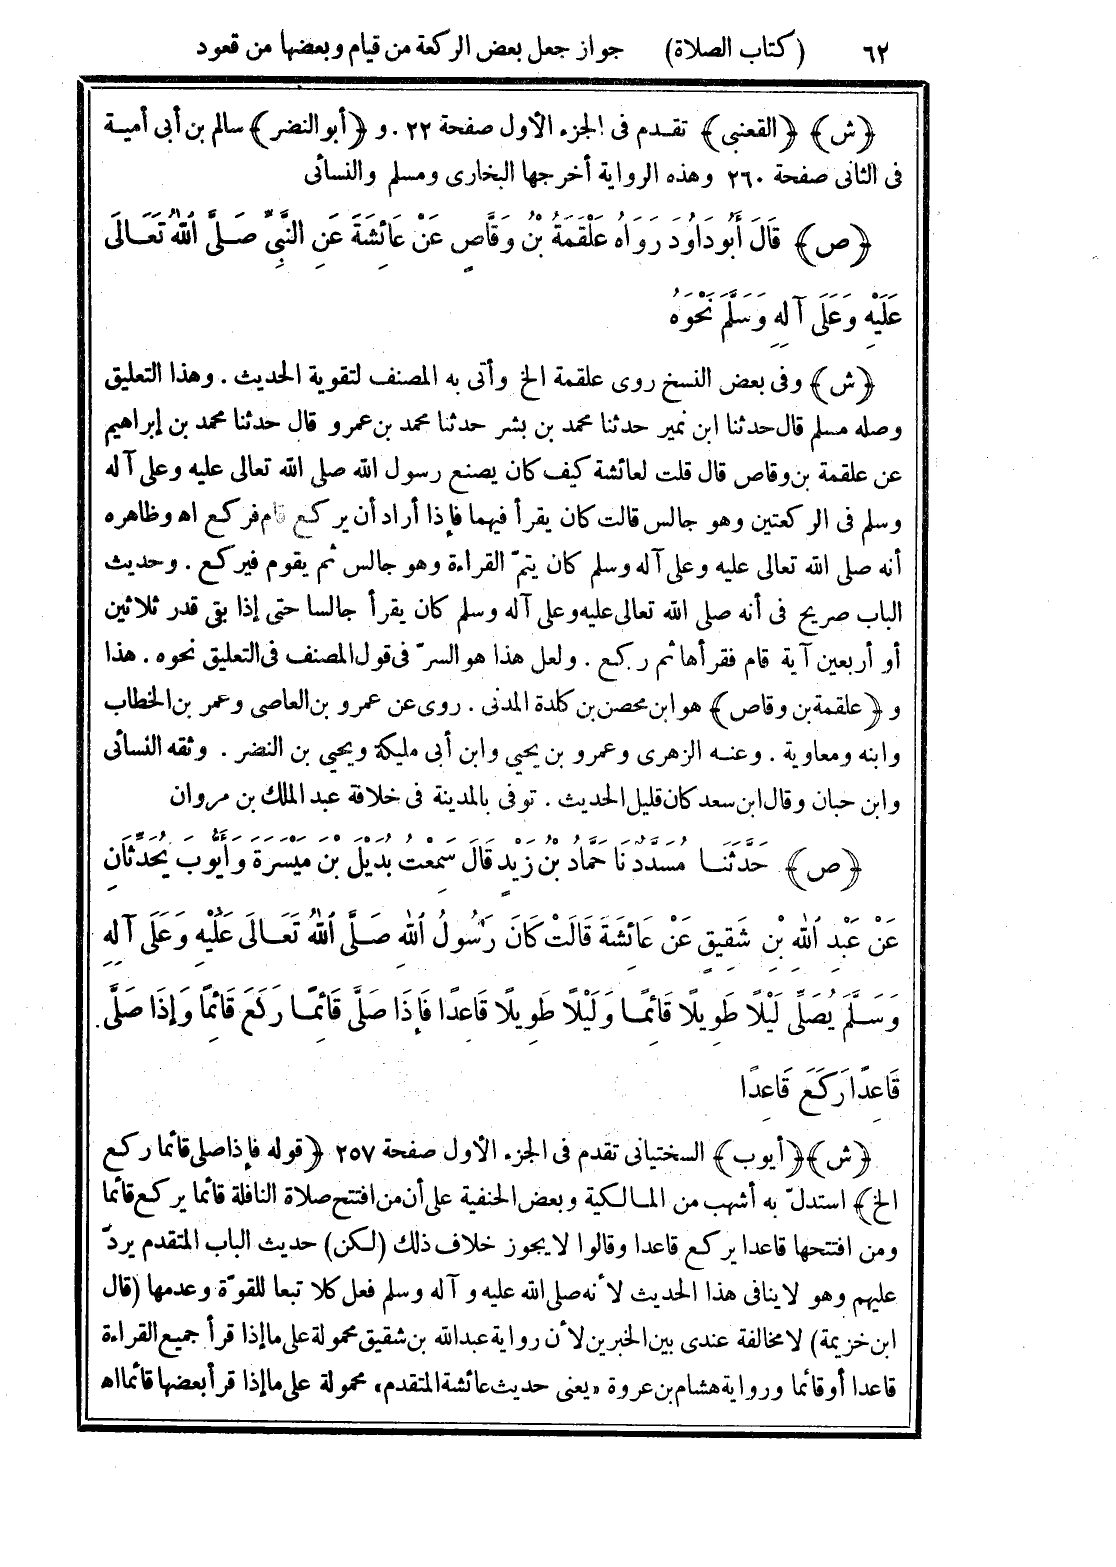 ٦٢ (كتاب الصلاة) جواز جعل بعض الركعة من قيام وبعضها من قعود
﴿ش﴾ ﴿القعنبى﴾ تقدم فى الجزء الأول صفحة ٢٢ . و ﴿أبو النضر﴾ سالم بن أبى أمية
فى الثانى صفحة ٢٦٠ وهذه الرواية أخرجها البخارى ومسلم والنسائى
﴿ص﴾ قَالَ أَبُو دَاوُدَ رَوَاهُ عَلْقَمَةُ بْنُ وَقَّاصٍ عَنْ عَائِشَةَ عَنِ النَّبِىِّ صَلَّى ٱللهُ تَعَالَى
عَلَيْهِ وَعَلَى آلِهِ وَسَلَّمَ نَحْوَهُ
﴿ش﴾ وفى بعض النسخ روى علقمة الخ وأتى به المصنف لتقوية الحديث . وهذا التعليق
وصله مسلم قال حدثنا ابن نمير حدثنا محمد بن بشر حدثنا محمد بن عمرو قال حدثنا محمد بن إبراهيم
عن علقمة بن وقاص قال قلت لعائشة كيف كان يصنع رسول الله صلى الله تعالى عليه وعلى آله
وسلم فى الركعتين وهو جالس قالت كان يقرأ فيهما فإذا أراد أن يركع قام فركع اه وظاهره
أنه صلى الله تعالى عليه وعلى آله وسلم كان يتمّ القراءة وهو جالس ثم يقوم فيركع . وحديث
الباب صريح فى أنه صلى الله تعالى عليه وعلى آله وسلم كان يقرأ جالسا حتى إذا بقى قدر ثلاثين
أو أربعين آية قام فقرأها ثم ركع . ولعل هذا هو السرّ فى قول المصنف فى التعليق نحوه . هذا
و ﴿علقمة بن وقاص﴾ هو ابن محصن بن كلدة المدنى . روى عن عمرو بن العاصى وعمر بن الخطاب
وابنه ومعاوية . وعنه الزهرى وعمرو بن يحيى وابن أبى مليكة ويحيى بن النضر . وثقه النسائى
وابن حبان وقال ابن سعد كان قليل الحديث . توفى بالمدينة فى خلافة عبد الملك بن مروان
﴿ص﴾ حَدَّثَنَا مُسَدَّدٌ نَا حَمَّادُ بْنُ زَيْدٍ قَالَ سَمِعْتُ بُدَيْلَ بْنَ مَيْسَرَةَ وَأَيُّوبَ يُحَدِّثَانِ
عَنْ عَبْدِ ٱللهِ بْنِ شَقِيقٍ عَنْ عَائِشَةَ قَالَتْ كَانَ رَسُولُ ٱللهِ صَلَّى ٱللهُ تَعَالَى عَلَيْهِ وَعَلَى آلِهِ
وَسَلَّمَ يُصَلِّى لَيْلًا طَوِيلًا قَائِمًا وَلَيْلًا طَوِيلًا قَاعِدًا فَإِذَا صَلَّى قَائِمًا رَكَعَ قَائِمًا وَإِذَا صَلَّى
قَاعِدًا رَكَعَ قَاعِدًا
﴿ش﴾ ﴿أيوب﴾ السختيانى تقدم فى الجزء الأول صفحة ٢٥٧ ﴿قوله فإذا صلى قائما ركع
الخ﴾ استدلّ به أشهب من المالكية وبعض الحنفية على أن من افتتح صلاة النافلة قائما يركع قائما
ومن افتتحها قاعدا يركع قاعدا وقالوا لا يجوز خلاف ذلك (لكن) حديث الباب المتقدم يردّ
عليهم وهو لا ينافى هذا الحديث لأنه صلى الله عليه وآله وسلم فعل كلا تبعا للقوّة وعدمها (قال
ابن خزيمة) لا مخالفة عندى بين الخبرين لأن رواية عبد الله بن شقيق محمولة على ما إذا قرأ جميع القراءة
قاعدا أو قائما ورواية هشام بن عروة «يعنى حديث عائشة المتقدم» محمولة على ما إذا قرأ بعضها قائما اه